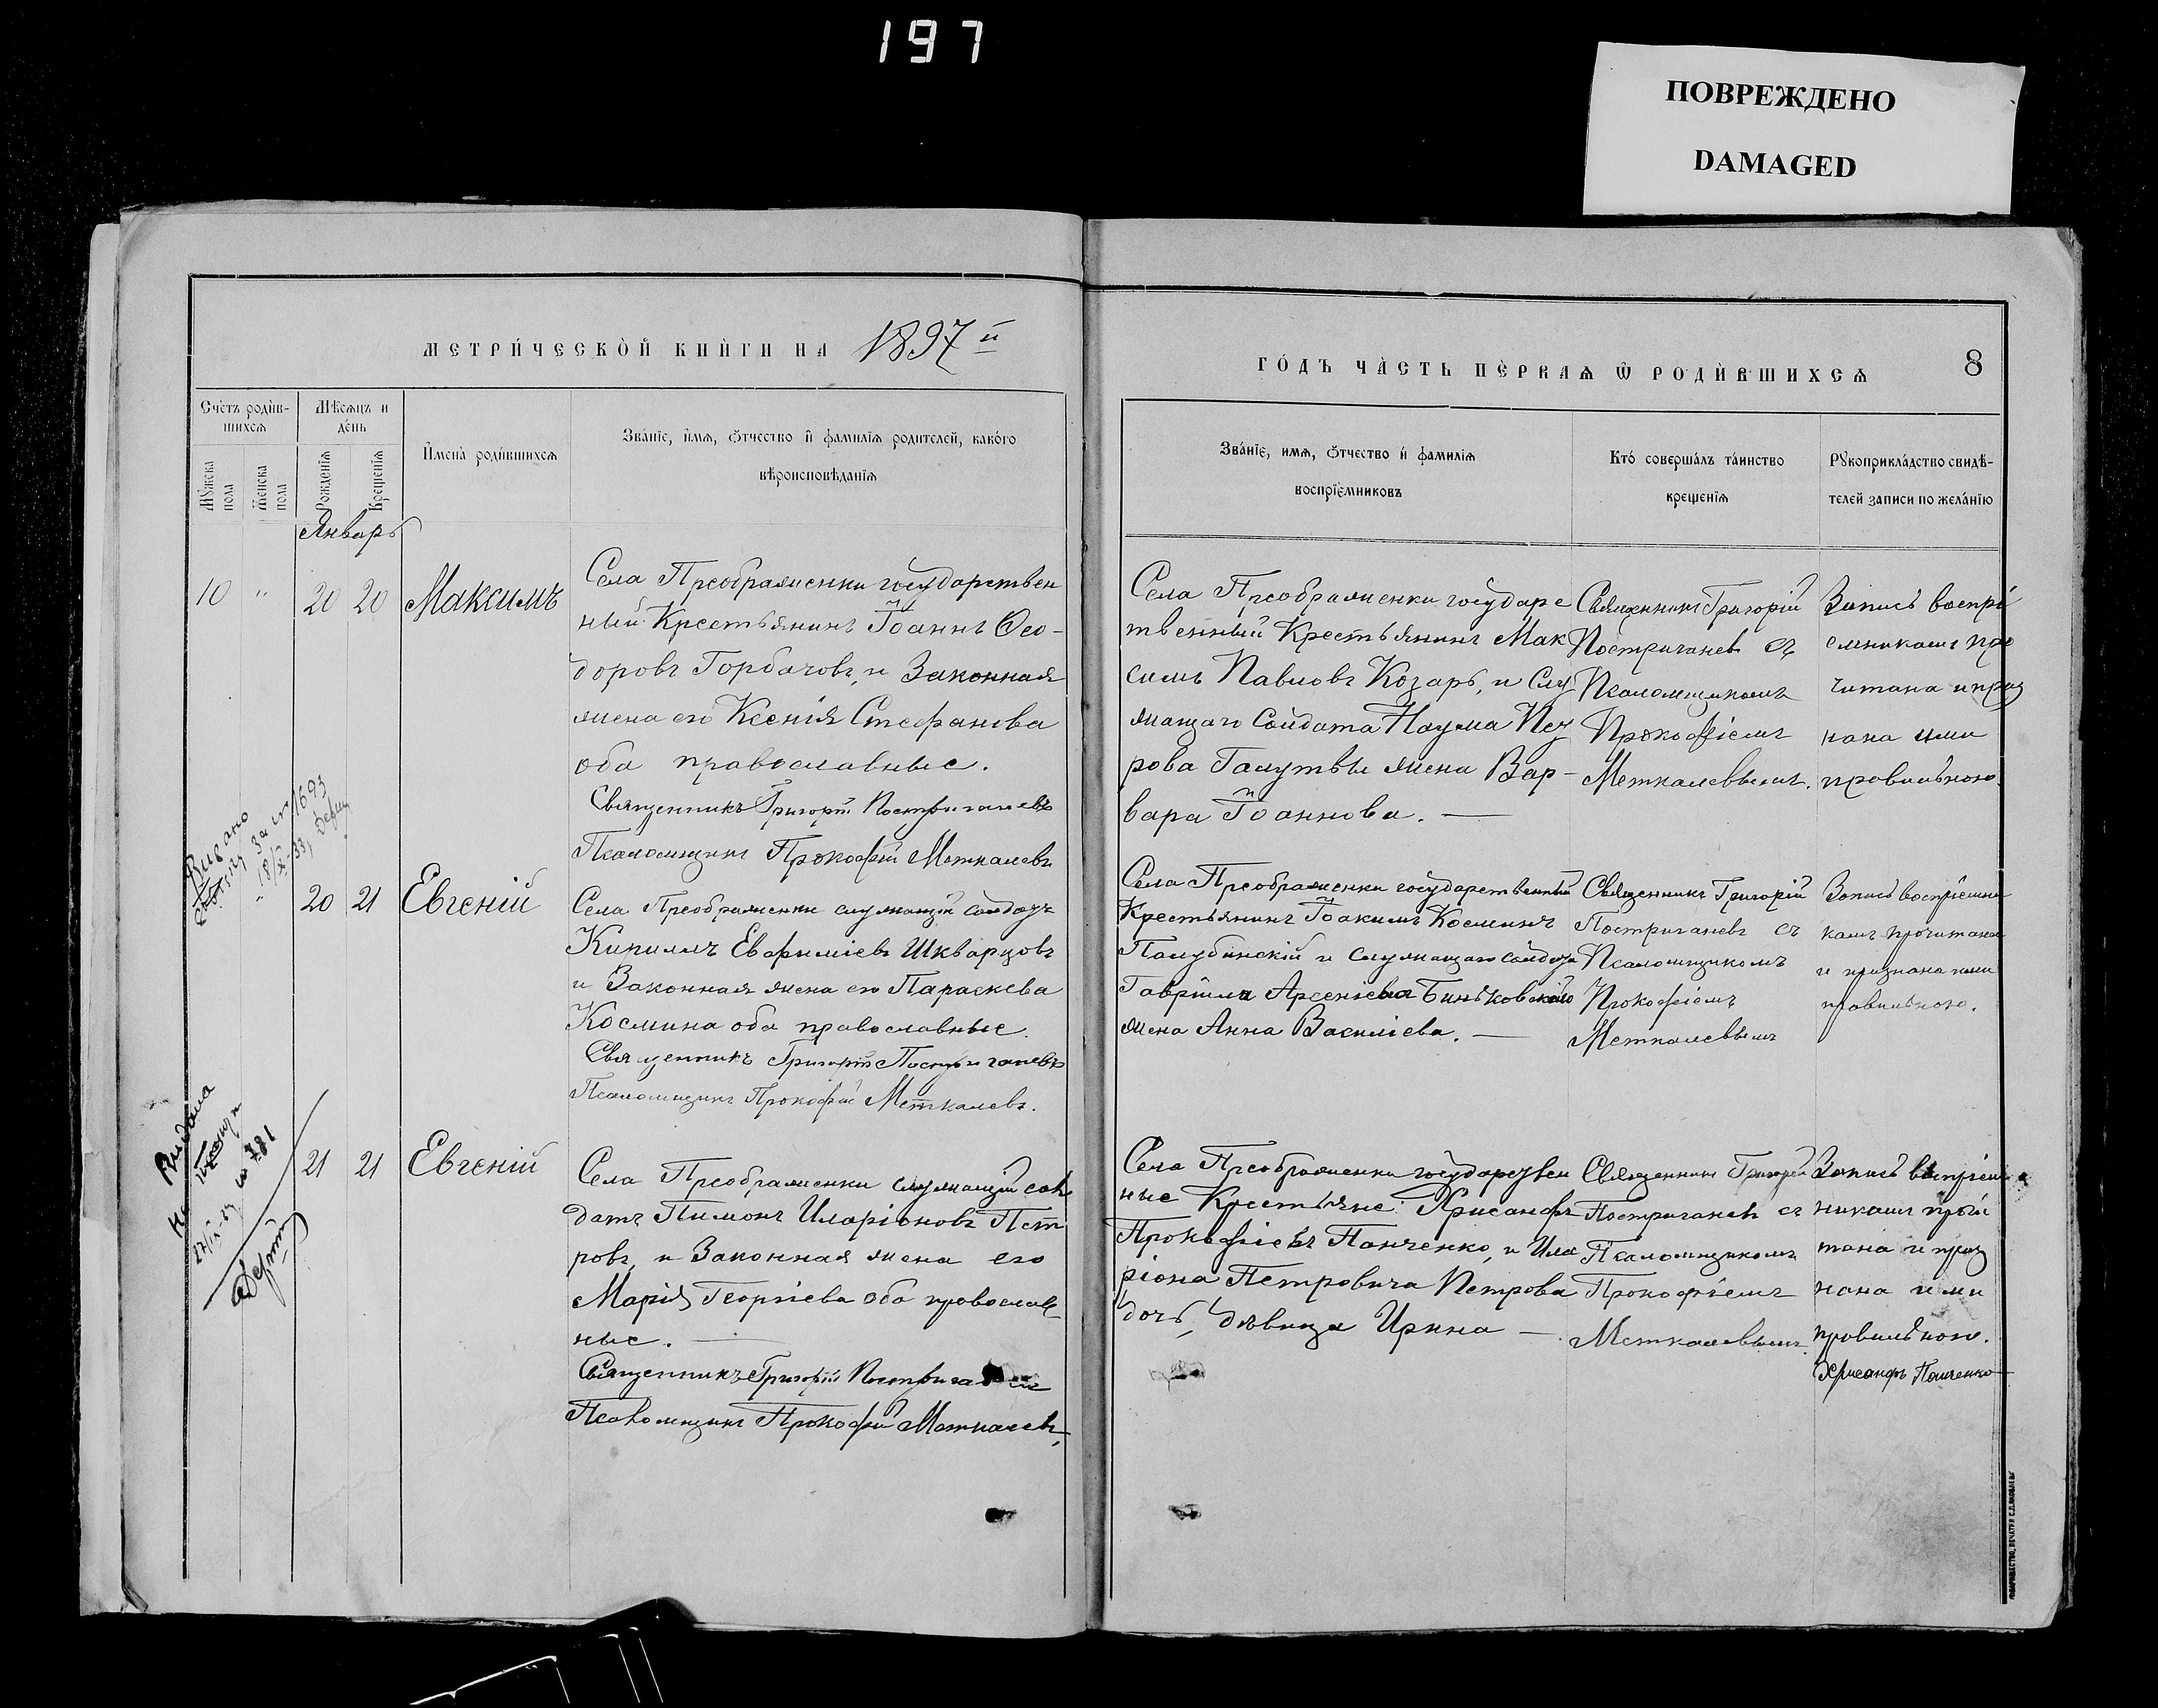 197
ПОВРЕЖДЕНО
DAMAGED
МЕТРИ́ЧЕСКОЙ КНИ́ГИ НА 1897й
ГО́ДЪ ЧА́СТЬ ПЕ́РВАѦ Ѡ РОДИ́ВШИХСѦ
8
Сче́тъ роди́в-
шихсѧ
Мѣ́сѧцъ и
де́нь
Мꙋ́жеска
пола
Же́нска
пола
Рожденїѧ
Крещенїѧ
И҆мена̀ роди́вшихсѧ
Зва́нїе, и҆мѧ, ѻ҆тчество и҆ фамилїѧ родителей, како́гѡ
вѣроисповѣданїѧ
Зва́нїе, имѧ, ѻ҆тчество и҆ фамилїѧ
воспрїе́мниковъ
Кто́ соверша́лъ та́инство
креще́нїѧ
Рꙋкоприкла́дство свидѣ́-
телей записи по жела́нїю
Январь
10 " 20 20 Максимъ
Села Преображенки государствен
ный Крестьянинъ Іоаннъ Ѳео-
доровъ Горбачовъ, и Законная
жена его Ксенія Стефанова
оба православные.
Священникъ Григорій Постриганевъ
Псаломщикъ Прокофій Меткалевъ
Села Преображенки государс
твенный Крестьянинъ Мак
симъ Павловъ Козарь, и Слу
жащаго Солдата Наума
рова жена Вар-
вара Іоаннова. —
Священникъ Григорій
Постриганевъ съ
Псаломщикомъ
Прокофіемъ
Меткалевымъ.
Запись воспрі
емникамъ про
читана и приз
нана ими
правильною.
Видано
за № 1693
20 21 Евгеній
Села Преображенки служащій солдатъ
Кириллъ Евфиміевъ Шкварцовъ
и Законная жена его Параскева
Космина оба православные.
Священникъ Григорій Постриганевъ
Псаломщикъ Прокофій Меткалевъ.
Села Преображенки государственный
Крестьянинъ Іоакимъ Косминъ
Голубинскій и служащаго солдата
Гавріила Арсеньева Биньковскаго
жена Анна Василіева. —
Священникъ Григорій
Постриганевъ съ
Псаломщикомъ
Прокофіемъ
Меткалевымъ
Запись воспріемни
камъ прочитана
и признана ими
правильною.
Видана
№ 781
21 21 Евгеній
Села Преображенки служащій сол
датъ Пимонъ Иларіоновъ Пет
ровъ, и Законная жена его
Марія Георгіева оба православ
ные. —
Священникъ Григорій
Псаломщикъ Прокофій Меткалевъ,
Села Преображенки государствен
ные Крестьяне: Хрисанфъ
Прокофіевъ Панченко, и Ила
ріона Петровича Петрова
дочь, дѣвица Ирина —
Священникъ Григорій
Постриганевъ съ
Псаломщикомъ
Прокофіемъ
Меткалевымъ.
Запись воспріем
никамъ прочи
тана и приз
нана ими
правильною.
Хрисанфъ Панченко